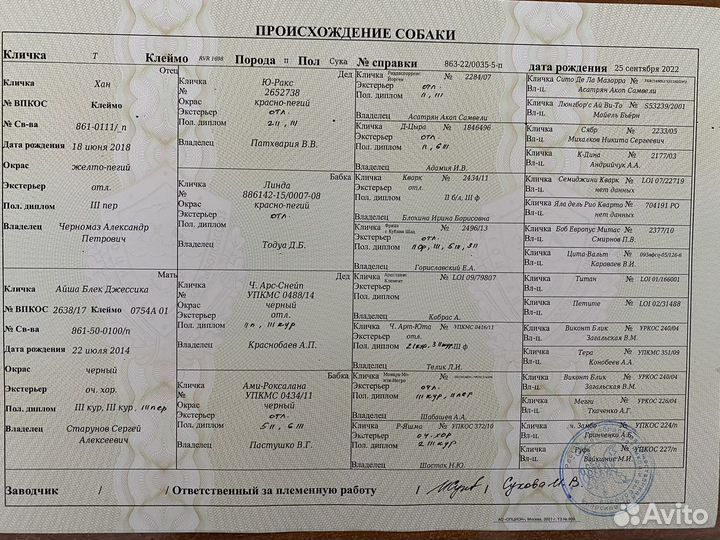 ПРОИСХОЖДЕНИЕ СОБАКИ
Кличка Т Клеймо RVR 1698 Порода п Пол Сука № справки 863-22/0035-5-п дата рождения 25 сентября 2022
Отец
Кличка Хан
№ ВПКОС Клеймо
№ Св-ва 861-0111/_п
Дата рождения 18 июня 2018
Окрас желто-пегий
Экстерьер отл.
Пол. диплом III пер
Владелец Черномаз Александр
Петрович
Мать
Кличка Айша Блек Джессика
№ ВПКОС 2638/17 Клеймо 0754А 01
№ Св-ва 861-50-0100/п
Дата рождения 22 июля 2014
Окрас черный
Экстерьер оч. хор.
Пол. диплом III кур, III кур, III пер
Владелец Старунов Сергей
Алексеевич
Дед
Кличка Ю-Ракс
№ 2652738
Окрас красно-пегий
Экстерьер отл.
Пол. диплом 2 II, III
Владелец Патхвария В.В.
Бабка
Кличка Линда
№ 886142-15/0007-08
Окрас красно-пегий
Экстерьер отл.
Пол. диплом
Владелец Тодуа Д.Б.
Дед
Кличка Ч. Арс-Снейп
№ УПКМС 0488/14
Окрас черный
Экстерьер отл.
Пол. диплом III кур
Владелец Краснобаев А.П.
Бабка
Кличка Ами-Роксалана
№ УПКМС 0434/11
Окрас черный
Экстерьер отл.
Пол. диплом 5 II, 6 III
Владелец Пастушко В.Г.
Кличка № 2284/07
Экстерьер отл.
Пол. диплом п, III
Владелец Асатрян Акоп Самвели
Кличка Д-Цыра № 1846496
Экстерьер отл.
Пол. диплом п, 6 III
Владелец Адамия И.В.
Кличка Кварк № 2434/11
Экстерьер отл.
Пол. диплом II б/л, III ф
Владелец Блохина Ирина Борисовна
Кличка Фрина с Кубани Шад № 2496/13
Экстерьер отл.
Пол. диплом
Владелец Гориславский Е.А.
Кличка Аристание Клемент № LOI 09/79807
Экстерьер
Пол. диплом
Владелец Кобрас А.
Кличка Ч. Арт-Юта № УПКМС 0416/11
Экстерьер отл.
Пол. диплом 2 I кур, 3 II кур, III ф
Владелец Телик Л.И.
Кличка №
Экстерьер отл.
Пол. диплом III кур, II пер
Владелец Шабашев А.А.
Кличка Р-Яшма № УПКОС 372/10
Экстерьер оч. хор
Пол. диплом 2 III кур
Владелец Шостак Н.Ю.
Кличка Сито Де Ла Мазорра №
Вл-ц. Асатрян Акоп Самвели
Кличка Люнгбор'с Ай Ви-То № S53239/2001
Вл-ц. Майель Бьёрн
Кличка Сябр № 2233/05
Вл-ц. Михалков Никита Сергеевич
Кличка К-Дина № 2177/03
Вл-ц. Андрийчук А.А.
Кличка Семиджини Кварк № LOI 07/22719
Вл-ц. нет данных
Кличка Яла дель Рио Кварто № 704191 PO
Вл-ц. нет данных
Кличка Боб Европеус Митас № 2377/10
Вл-ц. Смирнов П.В.
Кличка Цита-Вальт №
Вл-ц. Караваев В.И.
Кличка Титан № LOI 01/166001
Вл-ц.
Кличка Петите № LOI 02/31488
Вл-ц.
Кличка Виконт Блик № УРКОС 240/04
Вл-ц. Загальская В.М.
Кличка Тера № УПКМС 351/09
Вл-ц. Конобеев А.А.
Кличка Виконт Блик № УРКОС 240/04
Вл-ц. Загальская В.М.
Кличка Мегги № УРКОС 226/04
Вл-ц. Ткаченко А.Г.
Кличка ч. Замбо № УПКОС 224/п
Вл-ц. Гринченко А.Б.
Кличка Руфь № УПКОС 227/п
Вл-ц. Вайкшис М.И.
Заводчик / /Ответственный за племенную работу / Сухова И.В.
АО «ОПЦИОН», Москва, 2021 г.
Avito